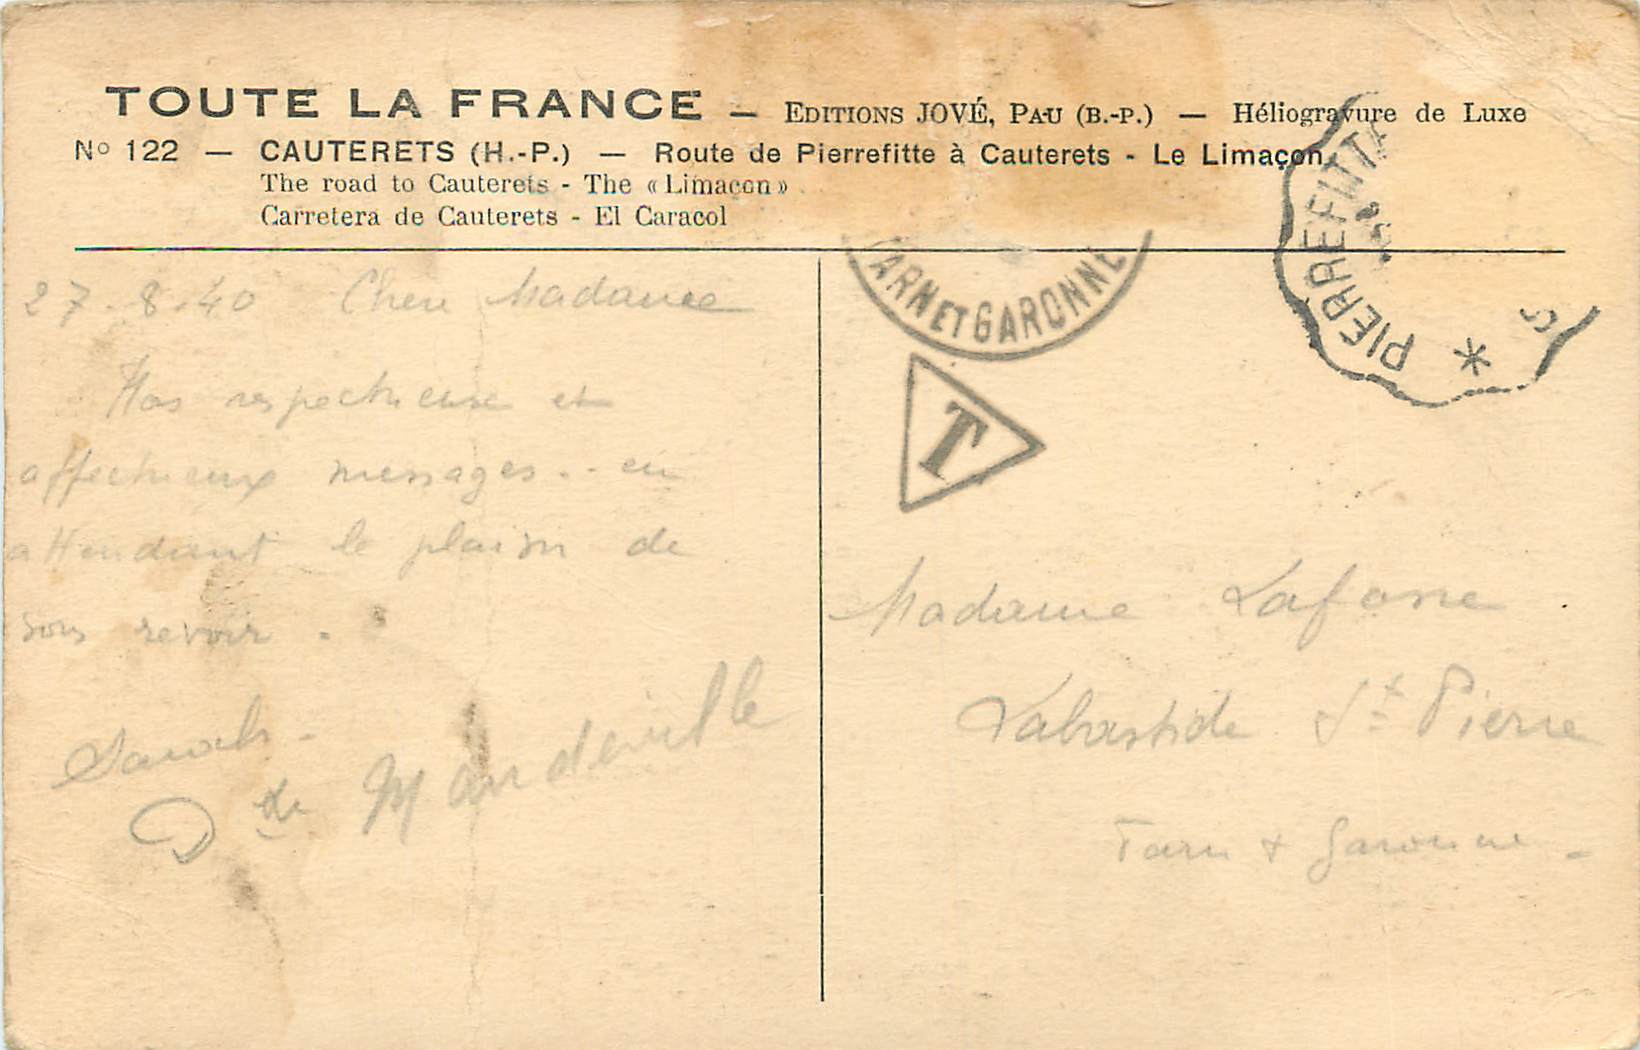 TOUTE LA FRANCE — EDITIONS JOVÉ, PAU (B.-P.) — Héliogravure de Luxe
No 122 — CAUTERETS (H.-P.) — Route de Pierrefitte à Cauterets - Le Limaçon
The road to Cauterets - The « Limacon »
Carretera de Cauterets - El Caracol
27-8-40 Chere Madame
Nos respectueux et
affectueux messages.. en
attendant le plaisir de
vous revoir.
Sarah -
D de Mandeville
TARN ET GARONNE
T
PIERREFITTE
*
Madame Lafosse
Labastide St Pierre
Tarn & Garonne -